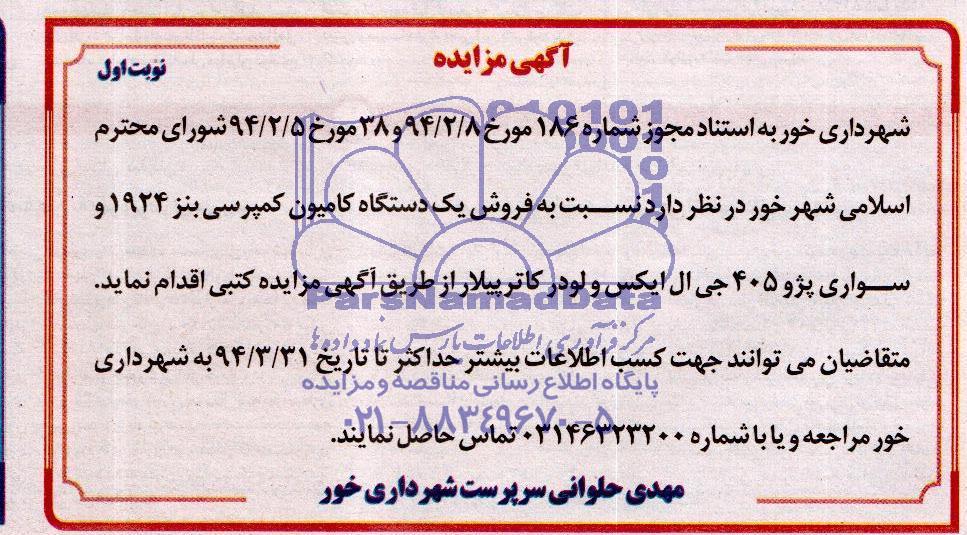 آگهی مزایده
نوبت اول
شهرداری خور به استناد مجوز شماره ۱۸۶ مورخ ۹۴/۲/۸ و ۳۸ مورخ ۹۴/۲/۵ شورای محترم
اسلامی شهر خور در نظر دارد نسبت به فروش یک دستگاه کامیون کمپرسی بنز ۱۹۲۴ و
سواری پژو ۴۰۵ جی ال ایکس و لودر کاترپیلار از طریق آگهی مزایده کتبی اقدام نماید.
ParsNamadData
مرکز فرآوری اطلاعات پارس نماد داده‌ها
متقاضیان می توانند جهت کسب اطلاعات بیشتر حداکثر تا تاریخ ۹۴/۳/۳۱ به شهرداری
پایگاه اطلاع رسانی مناقصه و مزایده
۰۲۱-۸۸۳۴۹۶۷۰-۵
خور مراجعه و یا با شماره ۰۳۱۴۶۳۲۳۲۰۰ تماس حاصل نمایند.
مهدی حلوانی سرپرست شهرداری خور